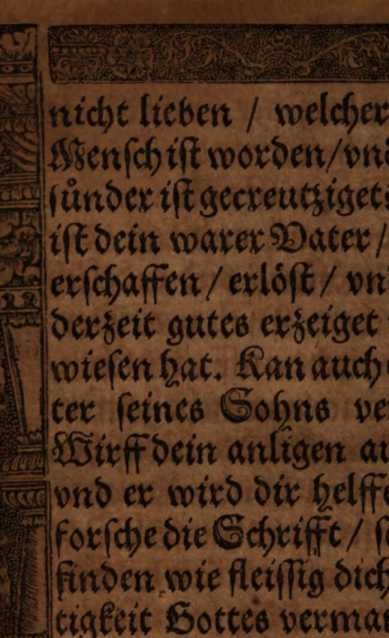 nicht lieben / welcher
Mensch ist worden/ vnd
sůnder ist gecreutziget:
ist dein warer Vater /
erschaffen / erlöst / vn
derzeit gutes erzeiget
wiesen hat. Kan auch
ter seines Sohns ve
Wirff dein anligen au
vnd er wird dir helffe
forsche die Schrifft / s
finden wie fleissig dich
tigkeit Gottes verma